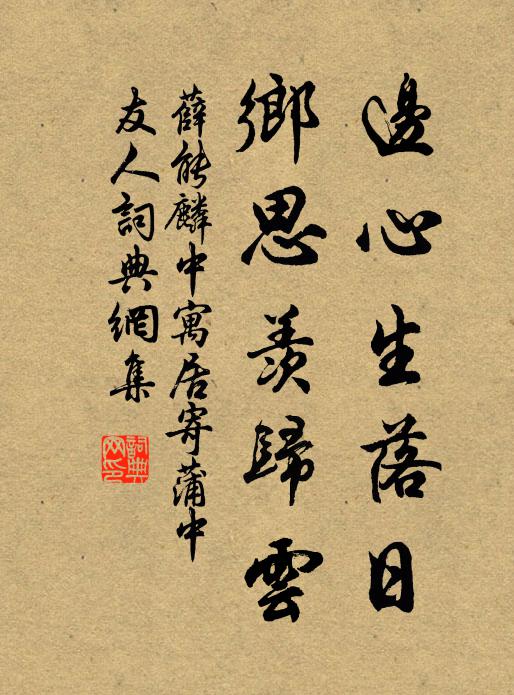 邊心生落日
鄉思羨歸雲
薛能麟中寓居寄蒲中
友人詞典網集
詞典
网印